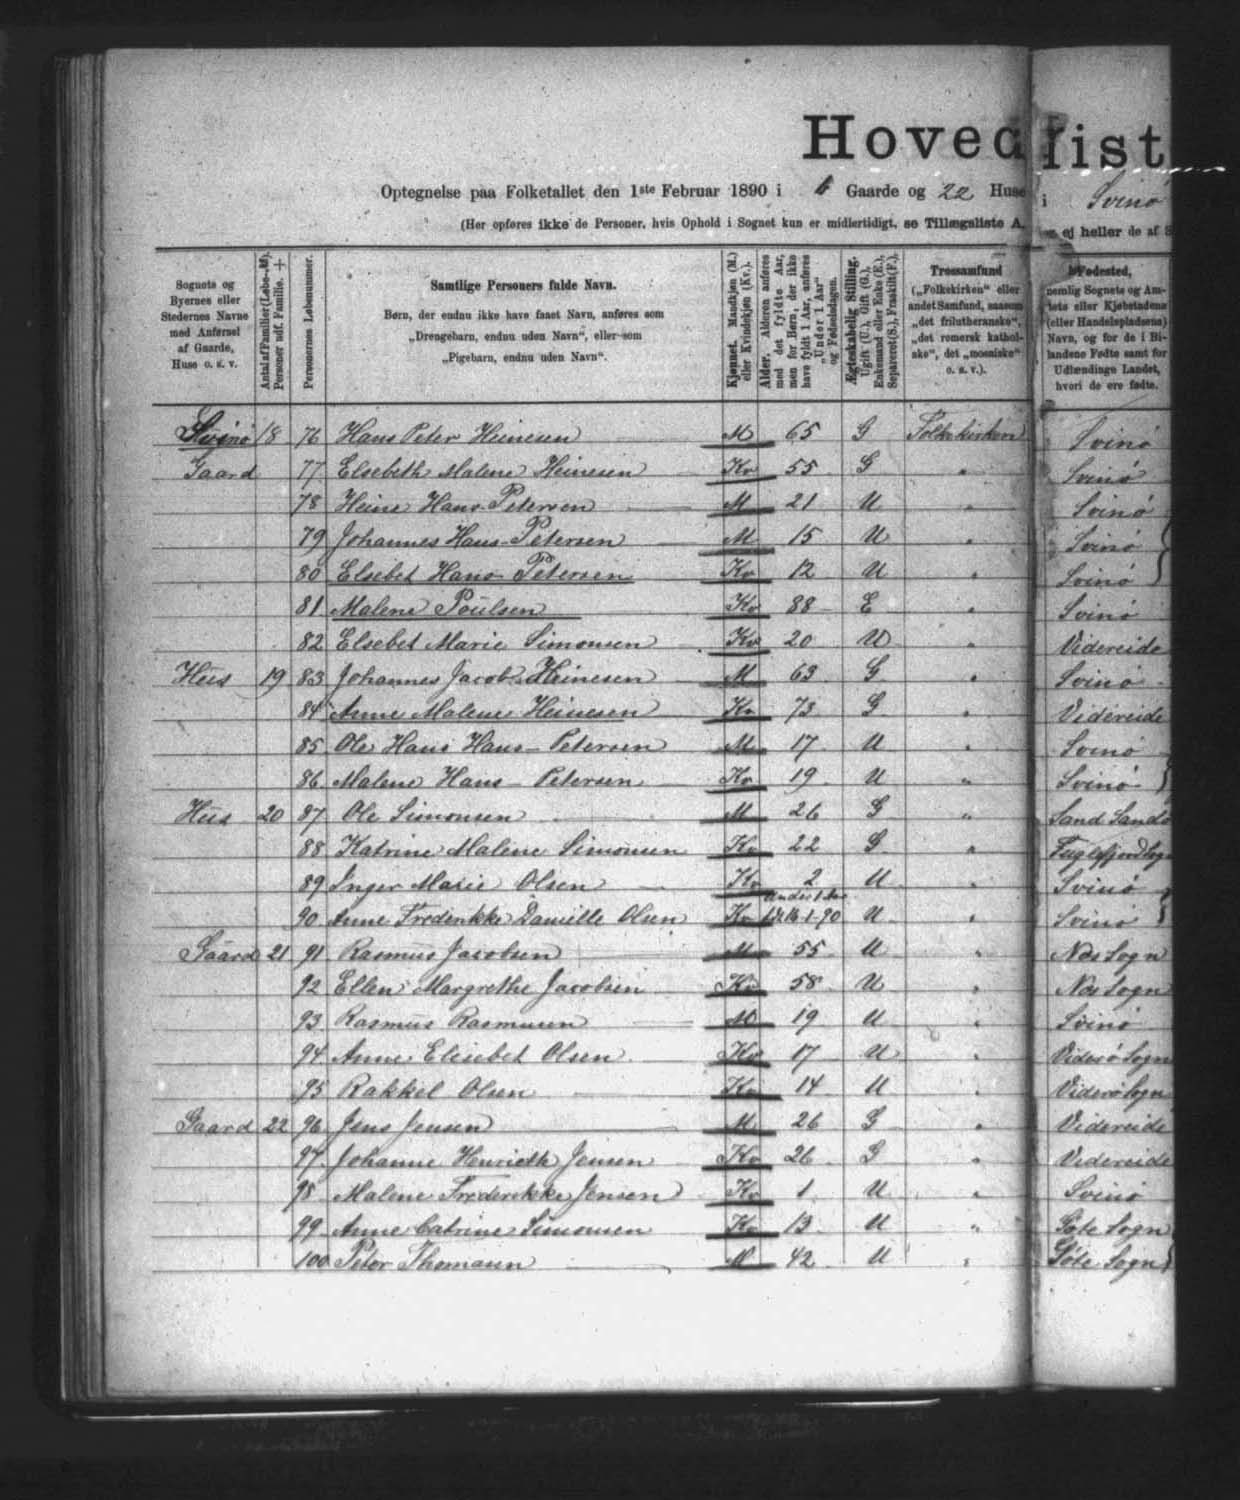 Hovedlist
Optegnelse paa Folketallet den 1ste Februar 1890 i 6 Gaarde og 22 Huse i Svinö
(Her opføres ikke de Personer, hvis Ophold i Sognet kun er midlertidigt, se Tillægsliste A, ej heller de af S
Sognets og Byernes eller Stedernes Navne med Anførsel af Gaarde, Huse o. s. v.
Antal af Familier (Løbe-№). Personer udf. Familie. +
Personernes Løbenummer.
Samtlige Personers fulde Navn.
Børn, der endnu ikke have faaet Navn, anføres som
„Drengebarn, endnu uden Navn“, eller som
„Pigebarn, endnu uden Navn“.
Kjønnet. Mandkjøn (M.) eller Kvindekjøn (Kv.).
Alder. Alderen anføres med det fyldte Aar, men for Børn, der ikke have fyldt 1 Aar, anføres „Under 1 Aar“ og Fødselsdagen.
Ægteskabelig Stilling. Ugift (U.), Gift (G.), Enkemand eller Enke (E.), Separeret (S.), Fraskilt (F.).
Trossamfund („Folkekirken“ eller andet Samfund, saasom „det frilutheranske“, „det romersk katholske“, det „mosaiske“ o. s. v.).
Fødested, nemlig Sognets og Amtets eller Kjøbstadens (eller Handelspladsens) Navn, og for de i Bilandene Fødte samt for Udlændinge Landet, hvori de ere fødte.
Svinö 18 76 Hans Peter Heinesen M 65 G Folkekirken Svinö
Gaard 77 Elsebeth Malene Heinesen Kv 55 G " Svinö
78 Heine Hans-Petersen M 21 U " Svinö
79 Johannes Hans-Petersen M 15 U " Svinö
80 Elsebet Hans-Petersen Kv 12 U " Svinö
81 Malene Poulsen Kv 88 E " Svinö
82 Elsebet Marie Simonsen Kv 20 U " Videreide
Huus 19 83 Johannes Jacob Heinesen M 63 G " Svinö
84 Anne Malene Heinesen Kv 73 G " Videreide
85 Ole Hans Hans-Petersen M 17 U " Svinö
86 Malene Hans-Petersen Kv 19 U " Svinö
Huus 20 87 Ole Simonsen M 26 G " Sand Sandö
88 Katrine Malene Simonsen Kv 22 G " Fuglefjord Sogn
89 Inger Marie Olsen Kv 2 U " Svinö
90 Anne Frederikke Danielle Olsen Kv Under 1 Aar 16-1-90 U " Svinö
Gaard 21 91 Rasmus Jacobsen M 55 U " Nös Sogn
92 Ellen Margrethe Jacobsen Kv 58 U " Nös Sogn
93 Rasmus Rasmussen M 19 U " Svinö
94 Anne Elisebet Olsen Kv 17 U " Viderö Sogn
95 Rakkel Olsen Kv 14 U " Viderö Sogn
Gaard 22 96 Jens Jensen M 26 G " Videreide
97 Johanne Henrieth Jensen Kv 26 G " Videreide
98 Malene Frederikke Jensen Kv 1 U " Svinö
99 Anne Catrine Simonsen Kv 13 U " Göte Sogn
100 Peter Thomasen M 42 U " Göte Sogn